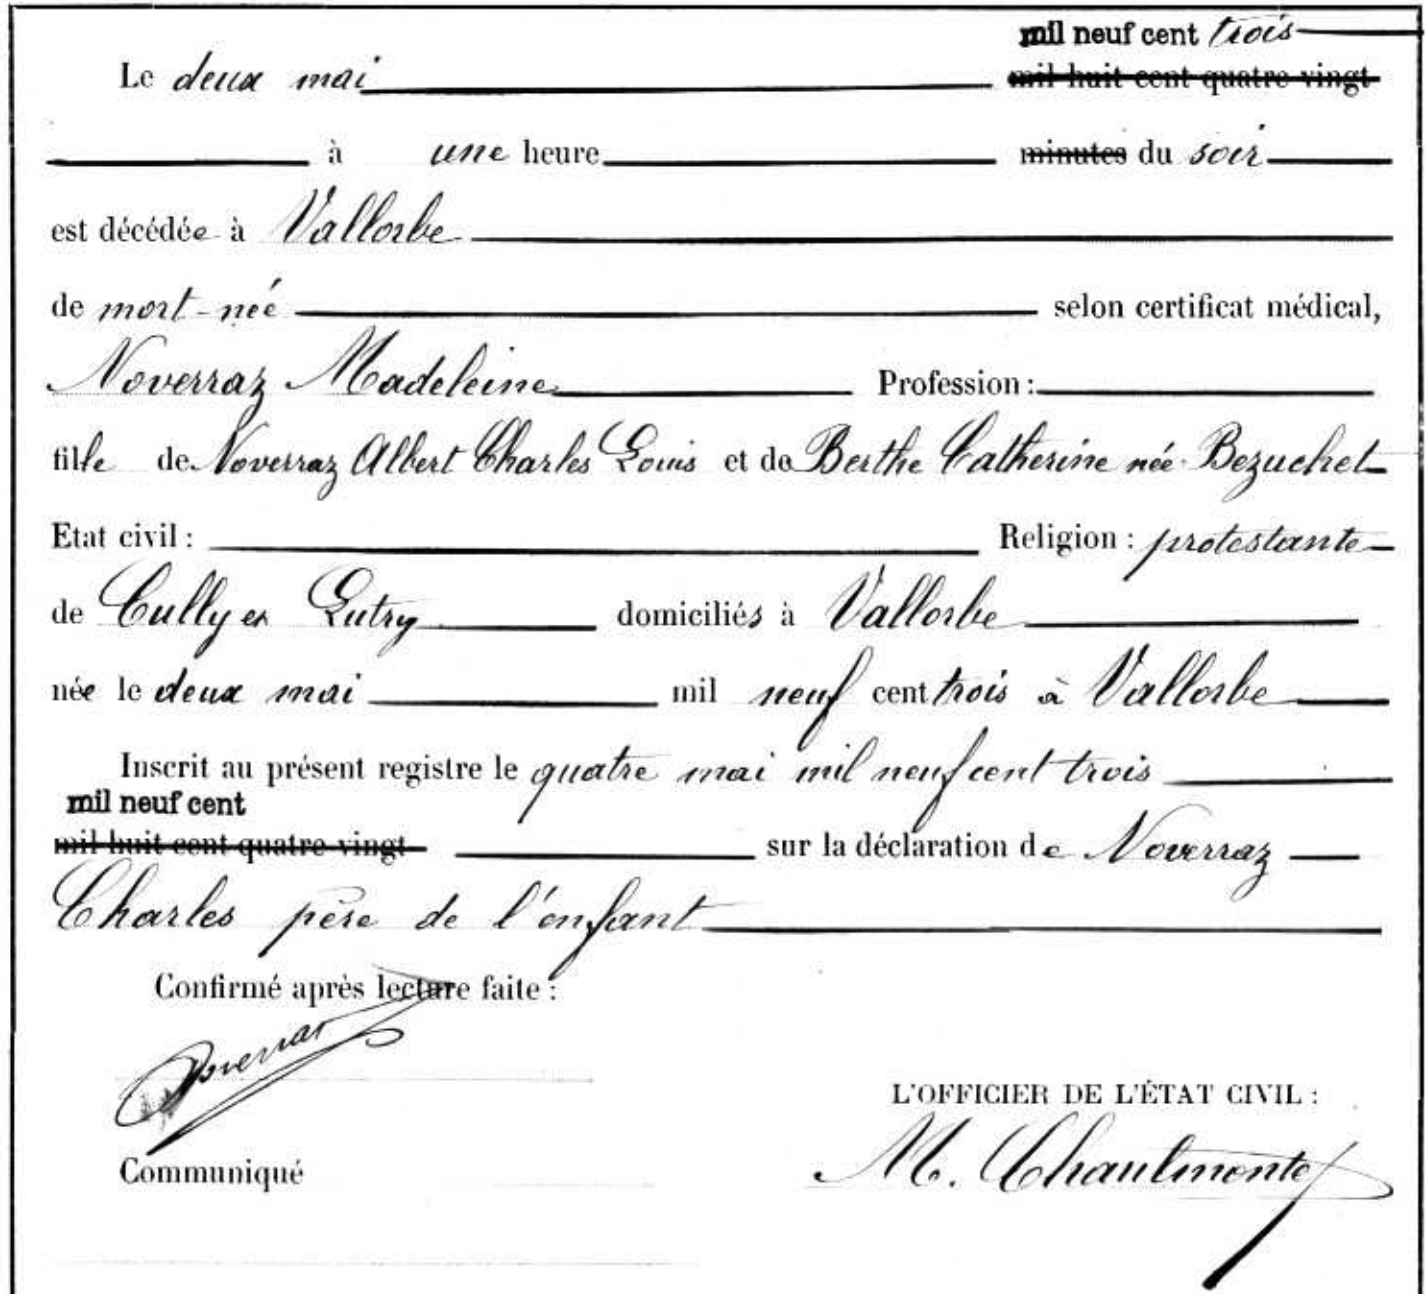 mil neuf cent trois
Le deux mai mil huit cent quatre vingt
à une heure minutes du soir
est décédée à Vallorbe
de mort-née selon certificat médical,
Noverraz Madeleine Profession :
fille de Noverraz Albert Charles Louis et de Berthe Catherine née Bezuchet
Etat civil : Religion : protestante
de Cully et Lutry domiciliés à Vallorbe
née le deux mai mil neuf cent trois à Vallorbe
Inscrit au présent registre le quatre mai mil neuf cent trois
mil neuf cent
mil huit cent quatre vingt sur la déclaration de Noverraz
Charles père de l'enfant
Confirmé après lecture faite :
Noverraz
L'OFFICIER DE L'ÉTAT CIVIL :
Communiqué
M.